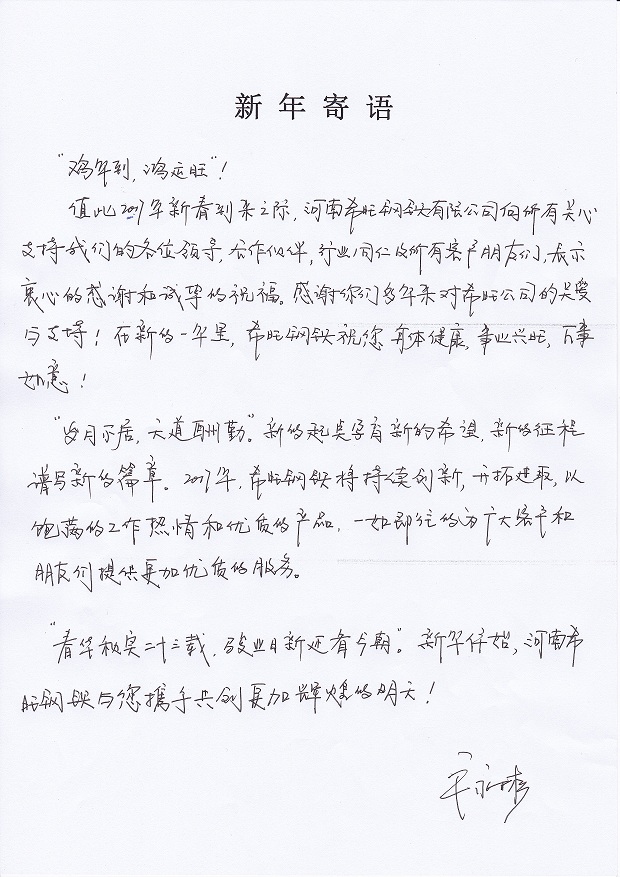 新年寄语
“鸡年到,鸿运旺”!
值此2017年新春到来之际,河南希旺钢铁有限公司向所有关心
支持我们的各位领导、合作伙伴,行业同仁及所有客户朋友们,表示
衷心的感谢和诚挚的祝福。感谢你们多年来对希旺公司的关爱
与支持!在新的一年里,希旺钢铁祝您身体健康,事业兴旺,万事
如意!
“岁月不居,天道酬勤”。新的起点孕育新的希望,新的征程
谱写新的篇章。2017年,希旺钢铁将持续创新,开拓进取,以
饱满的工作热情和优质的产品,一如即往的为广大客户和
朋友们提供更加优质的服务。
“春华秋实二十三载,骏业日新还看今朝”。新年伊始,河南希
旺钢铁与您携手共创更加辉煌的明天!